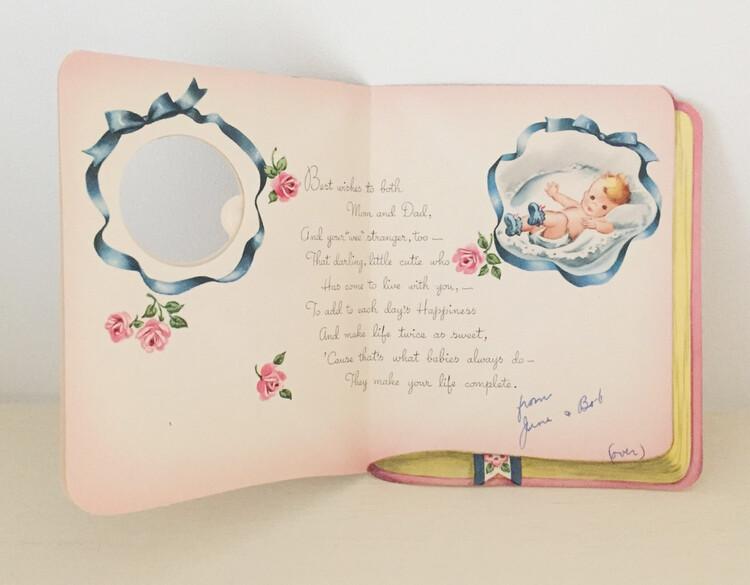 Best wishes to both
Mom and Dad,
And your "wee" stranger, too —
That darling, little cutie who
Has come to live with you, —
To add to each day's Happiness
And make life twice as sweet,
'Cause that's what babies always do —
They make your life complete.
from
June & Bob
(over)